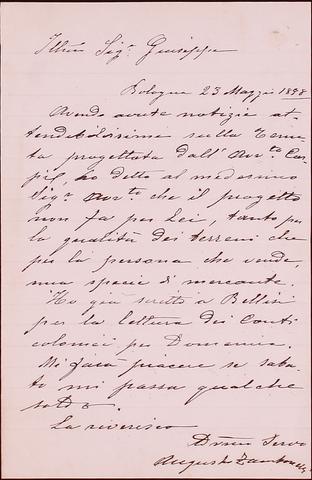 Illmo Sigr. Giuseppe
Bologna 23 Maggio 1898
Avendo avute notizie at-
tendibilissime sulla Tenu-
ta progettata dall' Avvto
ho detto al medesimo
Sigr. Avvto che il progetto
non fa per Lei, tanto per
la qualità dei terreni che
per la persona che vende,
una specie di mercante.
Ho già scritto a Bellini
per la lettura dei Conti
colonici per Domenica.
Mi farà piacere se saba-
to mi passa qualche
soldo.
La riverisco
Servo
Augusto